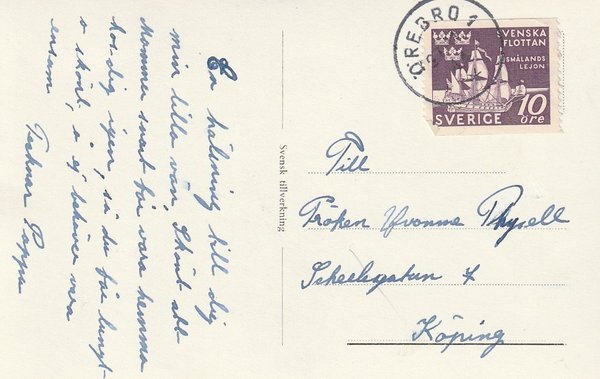 En hälsning till dig
min lilla vän. Skönt att
Mamma snart får vara hemma
hos dig igen, så du får lugnt
o skönt, o ej behöver vara
ensam
Pappa
Svensk tillverkning
ÖREBRO 1
SVENSKA
FLOTTAN
SMÅLANDS
LEJON
SVERIGE 10
öre
Till
Fröken Yvonne Thysell
Scheelegatan 7
Köping